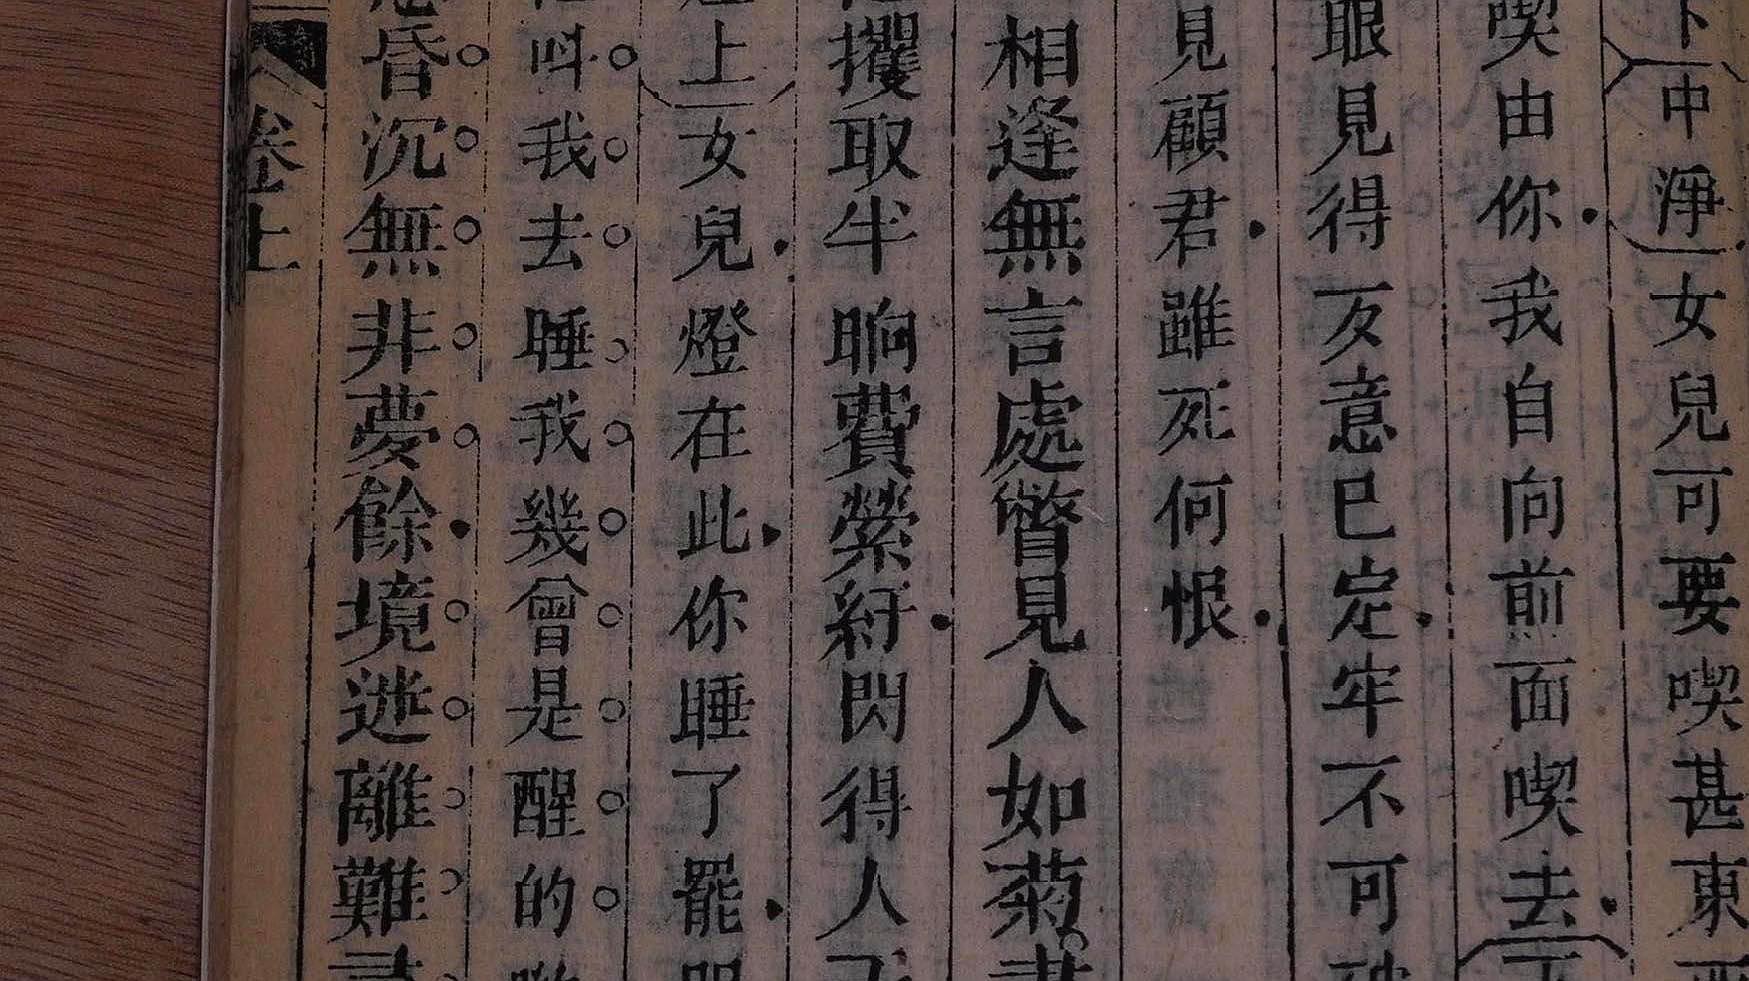 中淨女兒可要喫甚東
喫由你我自向前面喫去
眼見得一友意已定牢不可
見顧君雖死何恨
相逢無言處瞥見人如菊
攫取半晌費縈紆閃得人
上女兒燈在此你睡了罷
呌我去睡我幾曾是醒的
昏沉無非夢餘境迷離難
卷上